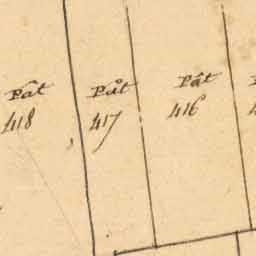 Pât Pât Pât
418 417 416